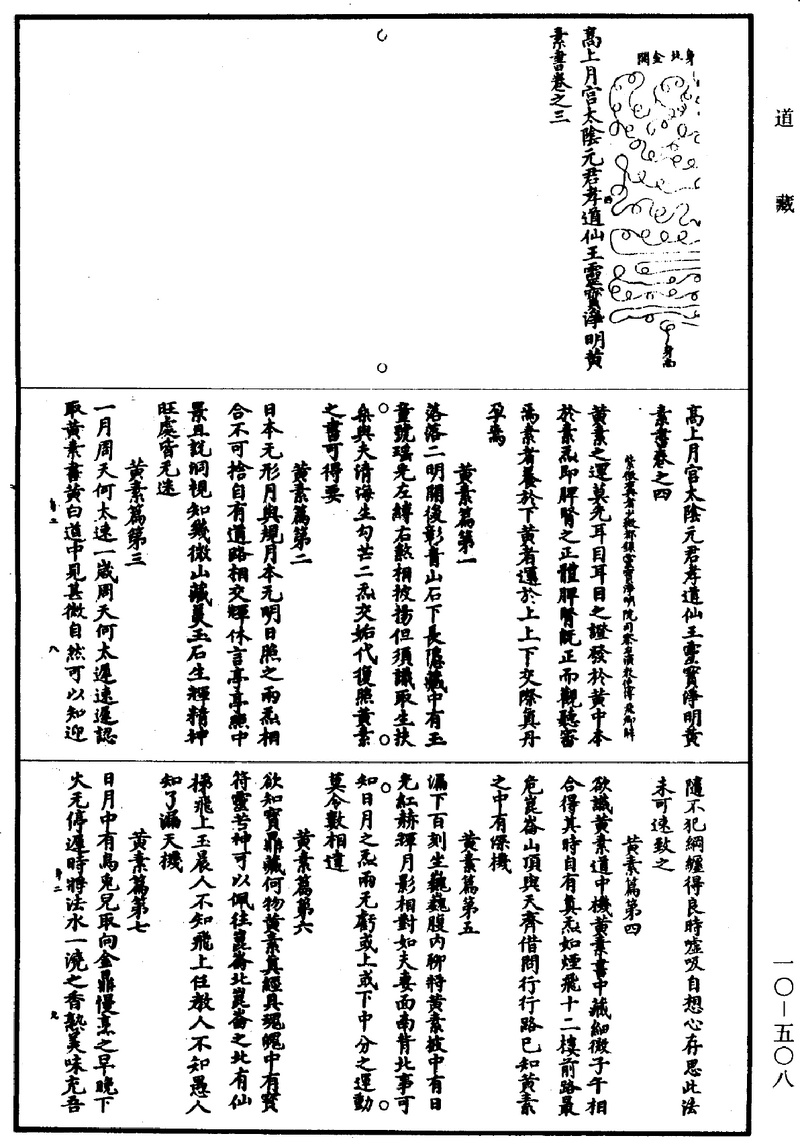 道藏
身北金闕
身南
高上月宮太陰元君孝道仙王靈寶淨明黃
素書卷之三
高上月宮太陰元君孝道仙王靈寶淨明黃
素書卷之四
黃素之運莫先耳目耳目之證發於黃中本
於素炁即脾腎之正體脾腎既正而觀聽審
焉素者養於下黃者運於上上下交際真丹
孕焉
黃素篇第一
落落二明開後彰青山石下長隱藏中有玉
童號瑤光左縛右煞相披揚但須識取生扶
桑與夫清海生勾芒二炁交姤代復照黃素
之書可得要
黃素篇第二
日本无形月與規月本无明日照之兩炁相
合不可捨自有道路相交輝休言亭亭照中
景且說洞視知幾微山藏美玉石生輝精神
旺處皆无迷
黃素篇第三
一月周天何太速一歲周天何太遲速遲認
取黃素書黃白道中見甚微自然可以知迎
隨不犯綱纏得良時噓吸自想心存思此法
未可速致之
黃素篇第四
欲識黃素道中機黃素書中藏細微子午相
合得其時自有真炁如煙飛十二樓前路最
危崑崙山頂與天齊借問行行路已知黃素
之中有深機
黃素篇第五
漏下百刻生巍巍腹内聊將黃素披中有日
光紅赫輝月影相對如夫妻面南背北事可
知日月之炁兩无虧或上或下中分之運動
莫令數相違
黃素篇第六
欲知寶鼎藏何物黃素真經具瑰魄中有寶
符靈若神可以佩往崑崙北崑崙之北有仙
梯飛上玉晨人不知飛上任教人不知愚人
知了漏天機
黃素篇第七
日月中有烏兎兄取向金鼎慢烹之早晚下
火无停遲時將法水一澆之香熟美味充吾
一〇—五〇八